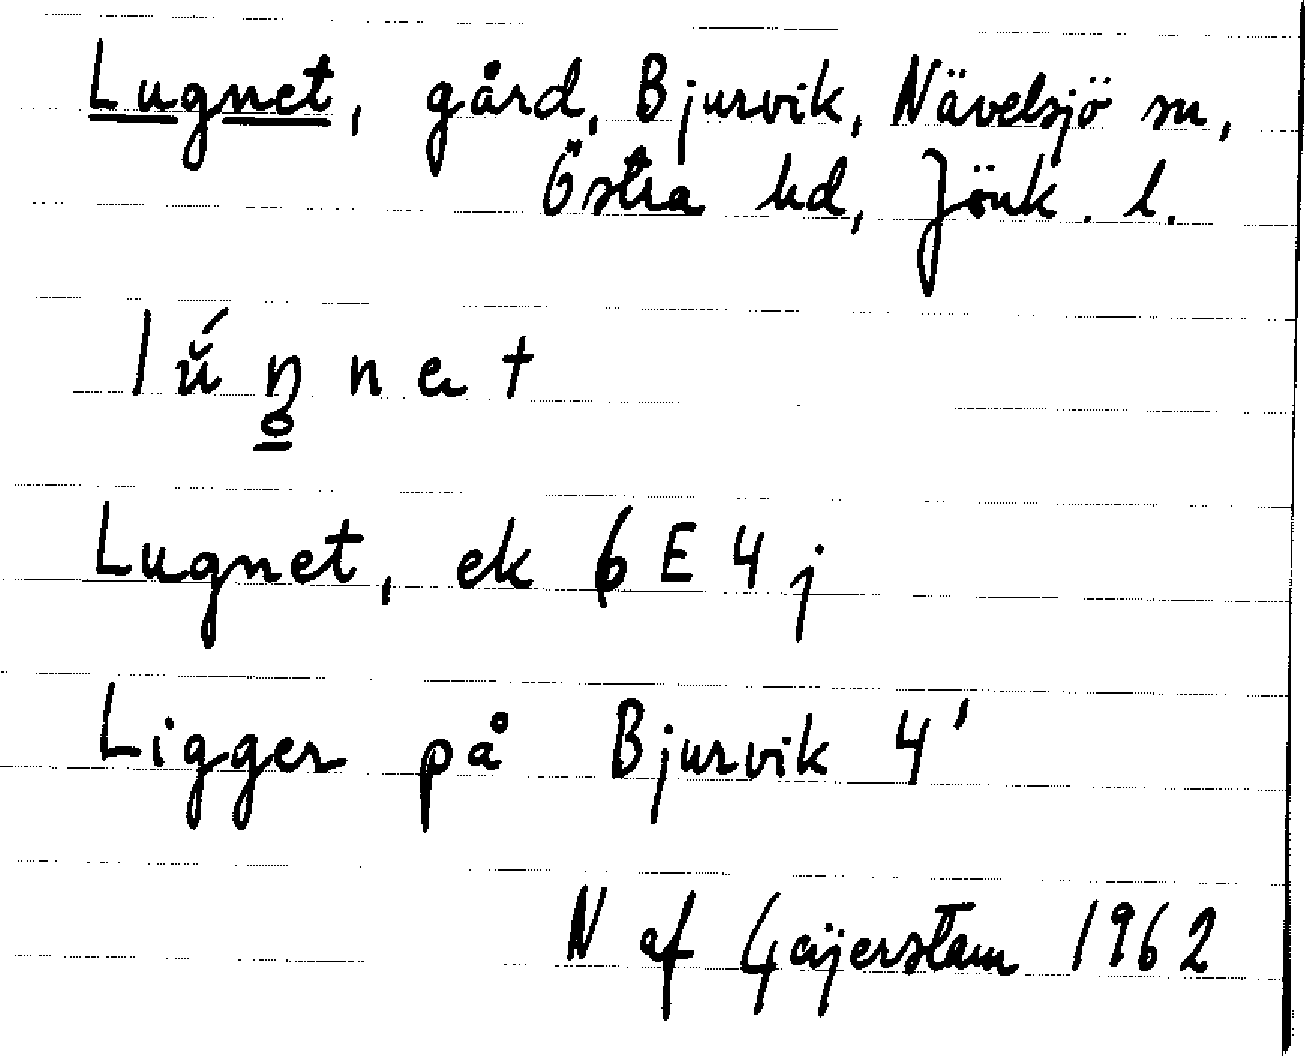 Lugnet, gård, Bjurvik, Nävelsjö sn,
Östra hd, Jönk. l.
lú̆ŋ̥̲net
Lugnet, ek 6 E 4 j
Ligger på Bjurvik 4'
N af Geijerstam 1962